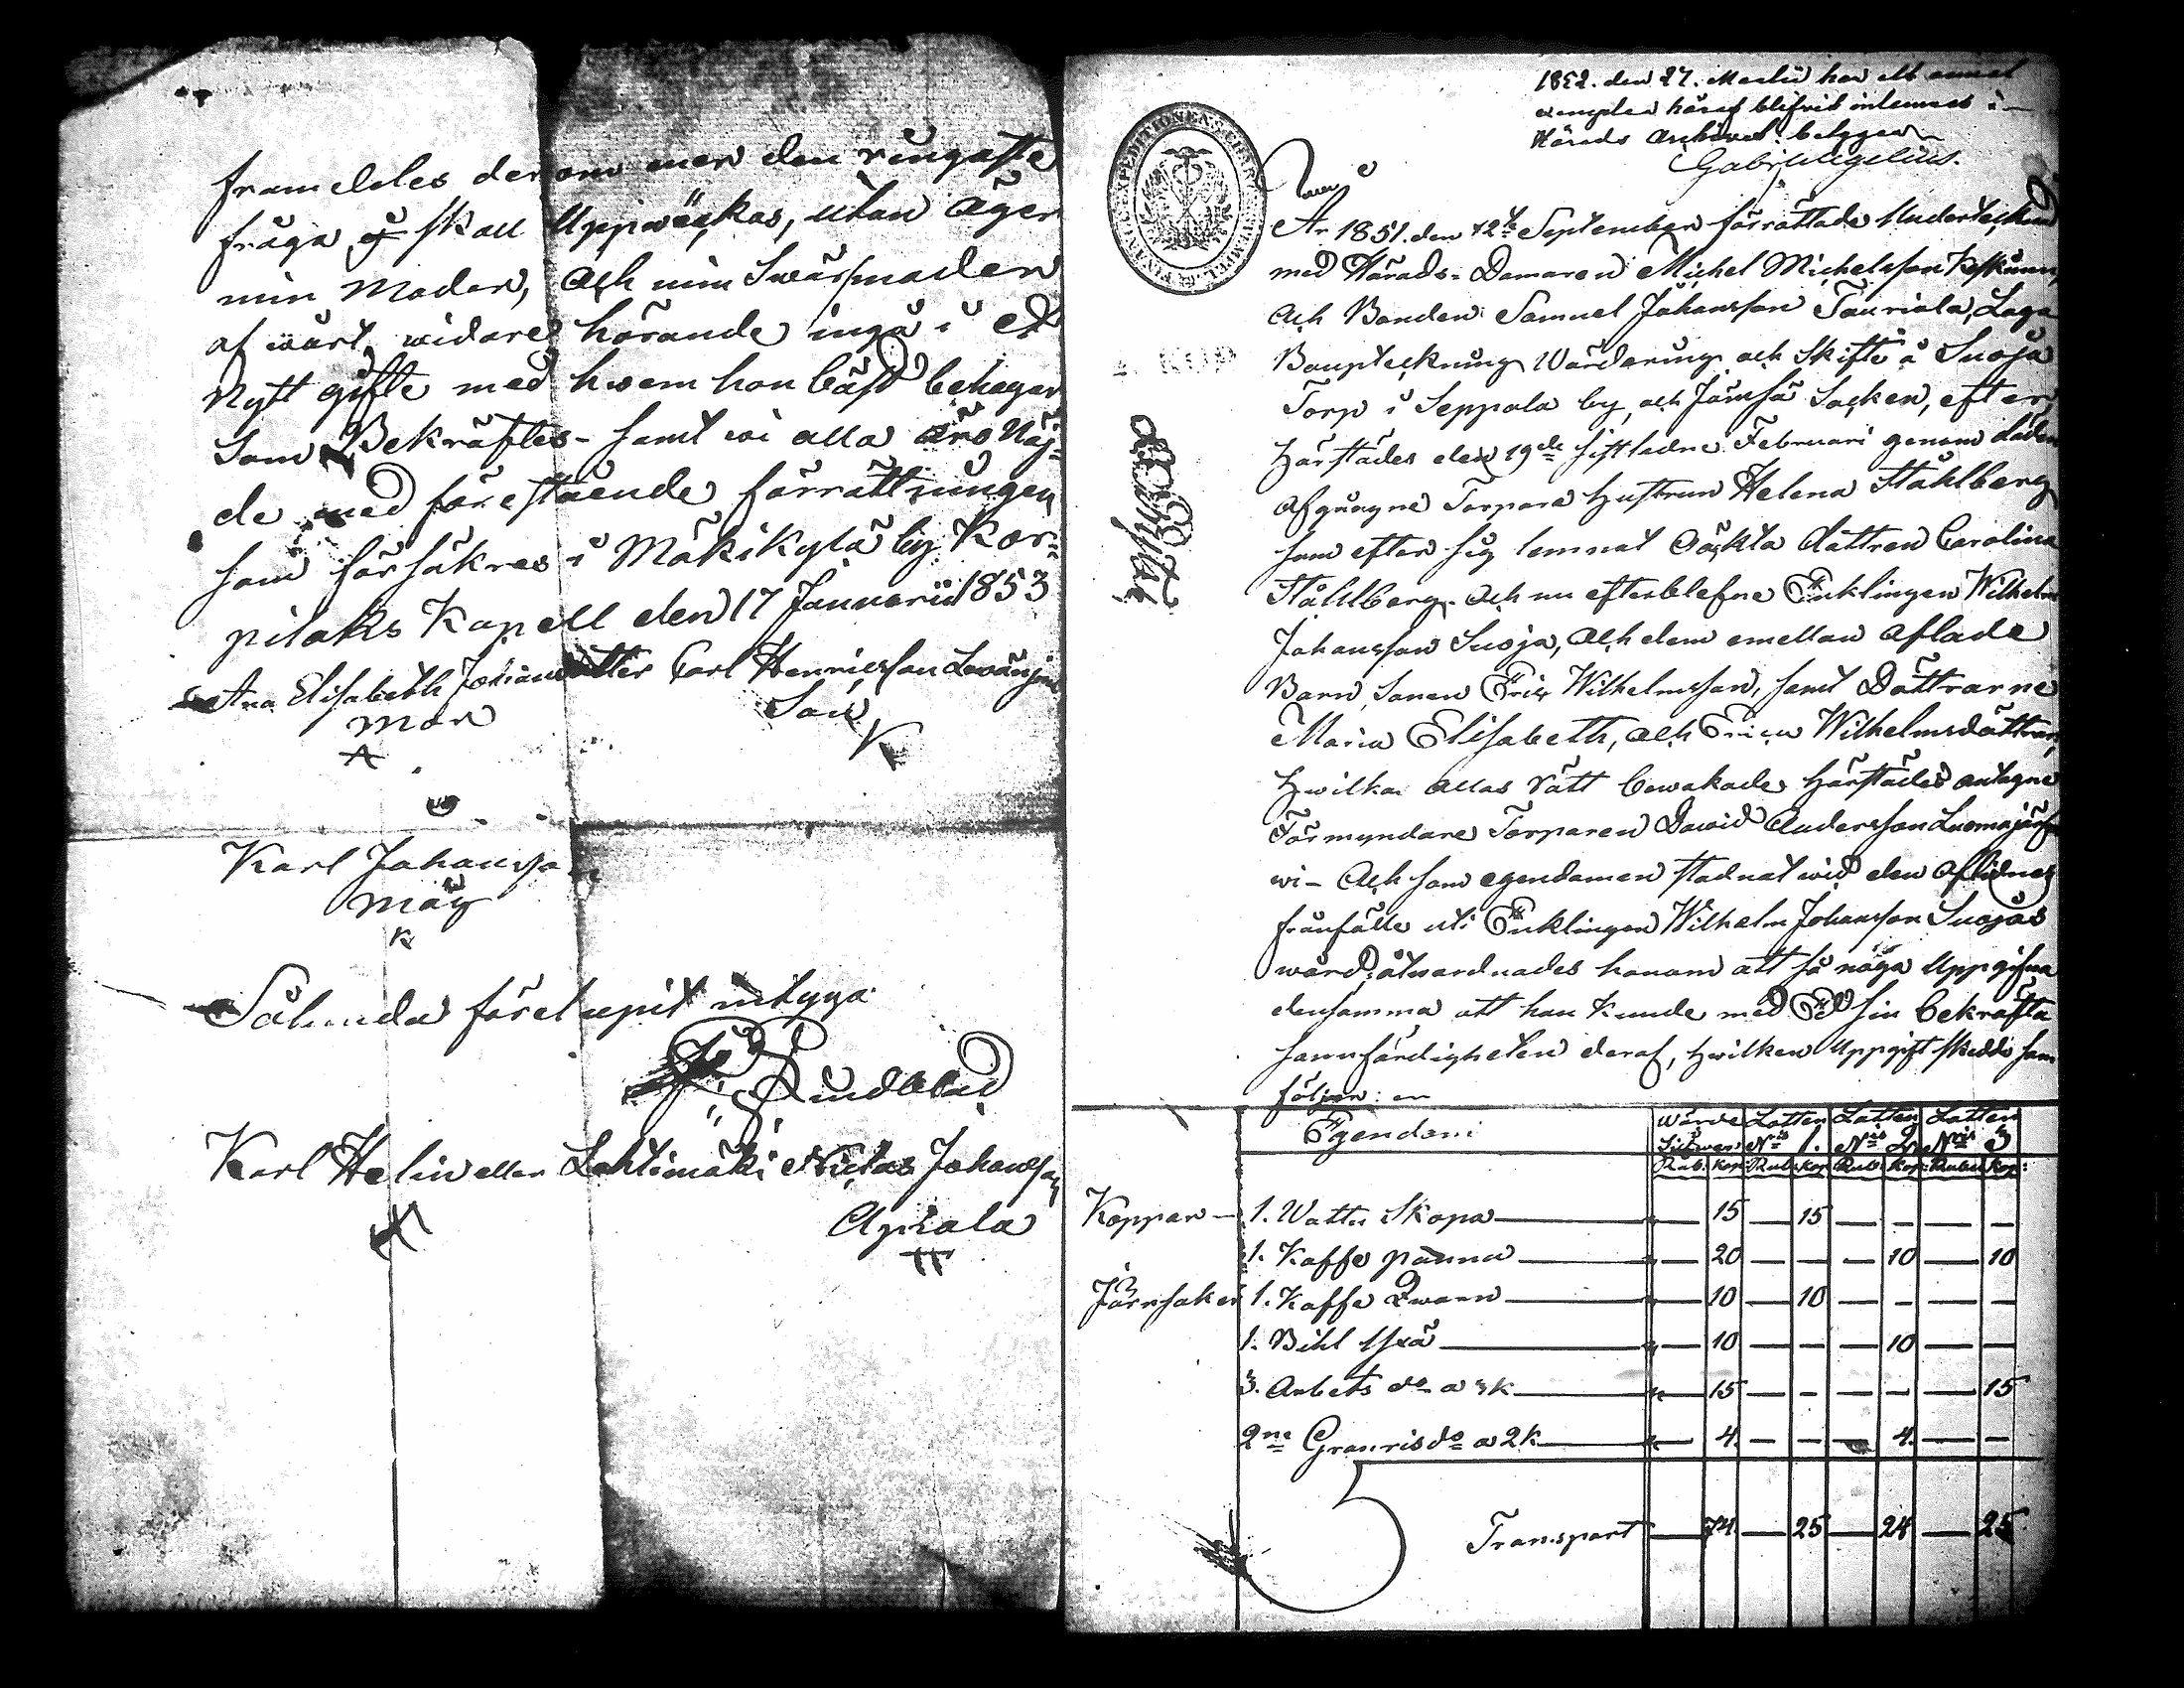 framdeles derom mer den ringaste
fråga ej skall Uppväckas, utan äger
min Moder, och min Swärmoder
af wårt widare hörande ingå i Et
Nytt gifte med hwem hon bäst behagar
Som Bekräftes - samt wi alla äro Nöj-
de med förestående förrättningen
som försäkras i Mäkikylä by Kor-
pilaks Kapell den 17 Januarii 1853
Ana Elisabeth Johansdotter Carl Henricsson
Mor Son
Karl Johansson
Måg
Sålunda förelupit intyga
Lindblad
Karl Helin eller Lahtimäki Niclas Johansson
1852. den 27. Martii har ett annat
exemplar häraf blifvit inlemnadt i
Härads Archivet: betygar
År 1851. den 12te September förrättade Undertecknad
med Härads-Domaren Michel Michelsson
och Bonden Samuel Johansson Tauriala, Laga
Bouptekning Wärdering och Skifte å Suoja
Torp i Seppola by och Jämsä Socken, efter
härstädes den 19de sistledne Februari genom döden
afgångne Torpare hustrun Helena Ståhlberg
som efter sig lemnat Oäkta dottren Carolina
Ståhlberg, och nu efterblefne Enklingen Wilhelm
Johansson Suoja, och dem emellan aflade
Barn, Sonen Eric Wilhelmsson, samt Döttrarne
Maria Elisabeth, och Erica Wilhelmsdöttrar,
hwilkas allas rätt bewakade härstädes antagne
Förmyndare Torparen Dawid Andersson Luomajär-
wi - Och som egendomen stadnat wid den aflidnes
frånfälle uti Enklingen Wilhelm Johansson Suojas
wård, åtwardnades honom att så noga Uppgifwa
densamma att han kunde med Ed sin bekräfta
sannfärdigheten deraf, hwilken Uppgift skedde som
följer: en
Egendom Wärde Silfwer Lotten Nris 1. Lotten Nris 2 Lotten Nris 3
Rub. Kop. Rub. Kop. Rub. Kop. Rub. Kop.
Koppar - 1. Watten Skopa — 15 — 15 — — — —
1. Kaffe panna — 20 — — — 10 — 10
Järnsaker 1. Kaffe Qwarn — 10 — 10 — — — —
1. Bihl Yxa — 10 — — — 10 — —
3. Arbets do — 15 — — — — — 15
2ne Granris do a 2 K — 4. — — — 4. — —
Transport — 74 — 25 — 24 — 25